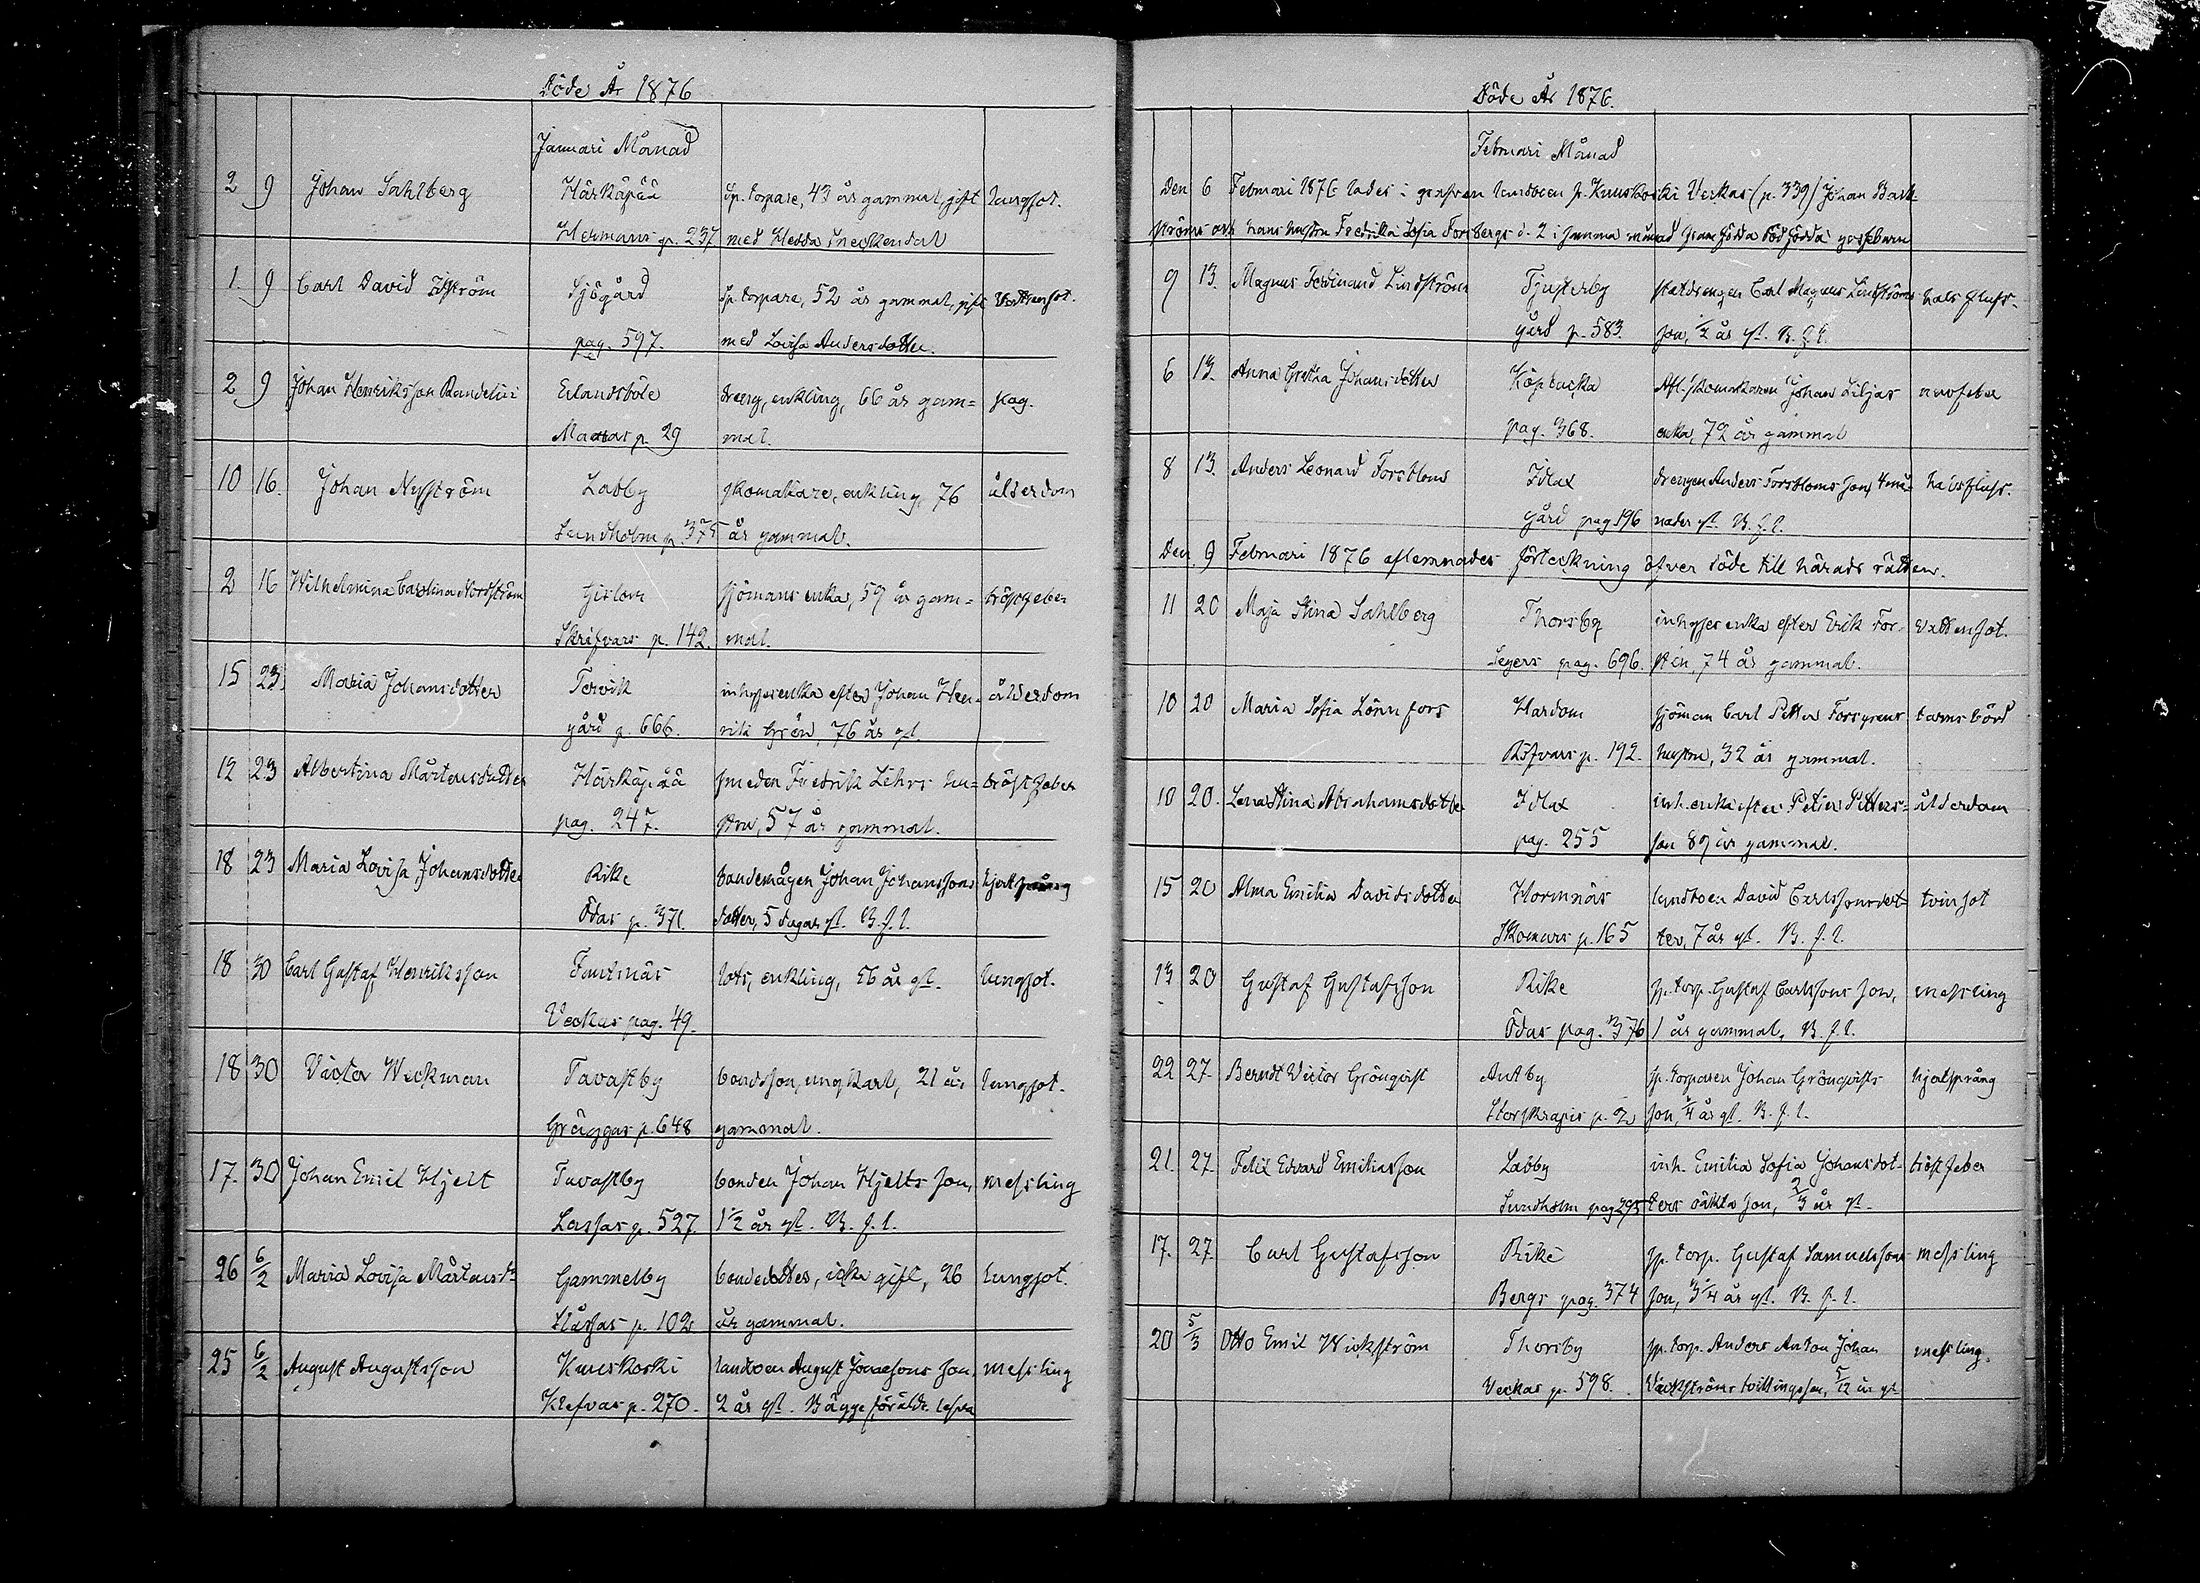 Döde År 1876
Januari Månad
2 9 Johan Sahlberg Härkäpää sp. torpare, 43 år gammal, gift lungsot.
Hermans p. 237 med Hedda Sneckendal
1. 9 Carl David Sjögård sp. torpare, 52 år gammal, gift vattensot.
pag. 597. med Lovisa Andersdotter.
2 9 Johan Henriksson Randelin Erlandsböle dreng, enkling, 66 år gam=
p. 29 mal.
10 16. Johan Nyström Labby skomakare, enkling, 76 ålderdom
Sundholm p 375 år gammal.
2 16 Wilhelmina Carolina Nordström Gislom sjömans enka, 59 år gam= bröstfeber
Skrifvars p. 142. mal.
15 23. Maria Johansdotter Tervik inhyses enka efter Johan Hen= ålderdom
gård p. 666. rik Grön, 76 år gl.
12 23 Albertina Mårtensdotter Härkäpää smeden Fredrik Lihrs hu= bröstfeber
pag. 247. stru, 57 år gammal.
18 23 Maria Lovisa Johansdotter Rike bondemågen Johan Johanssons
Ödas p. 371. dotter, 5 dagar gl. B. f. l.
18 30 Carl Gustaf Henriksson Fantsnäs lots, enkling, 56 år gl. lungsot.
Veckas pag. 49.
18 30 Victor Weckman Tavastby bondsson, ung karl, 21 år lungsot.
Gräggas p. 648 gammal.
17. 30 Johan Emil Hjelt Tavastby bonden Johan Hjelts son, messling
Lassas p. 527 1½ år gl. B. f. l.
26 6/2 Maria Lovisa Mårtensdr Gammelby bondedotter, icke gift, 26 lungsot.
p. 102 år gammal.
25 6/2 August Augustsson Kuuskoski landboen August Jonassons son, messling
Klefvas p. 270. 2 år gl. Bägge föräldr. lefva
Döde År 1876.
Februari Månad
Den 6 Februari 1876 lades i grafven landboen fr. Kuuskoski Veckas (p. 339) Johan Back=
ströms och hans hustru Fredrika Sofia Forsbergs d. 2 i samma månad födda dödfödda gossebarn
9 13. Magnus Ferdinand Lindström Tjusterby statdrengen Carl Magnus Lindströms halsfluss.
gård p. 583. son, ½ år gl. B. f. l.
6 13. Anna Gretha Johansdotter Köpbacka Afl. skomakaren Johan Liljas nervfeber
pag. 368. enka, 72 år gammal
8 13. Anders Leonard Forsblom Idlax drengen Anders Forsbloms son, 4 må= halsfluss.
gård pag 196 nader gl. B. f. l.
Den 9 Februari 1876 aflemnades förteckning öfver döde till härads rätten.
11 20 Maja Stina Sahlberg Thorsby inhyses enka efter Erik For= vattensot.
Segers pag. 696. stén, 74 år gammal.
10 20 Maria Sofia Lönnfors Hardom sjöman Carl Petter Forsgrens barnsbörd
p. 192. hustru, 32 år gammal.
10 20. Lena Stina Abrahamsdotter Idlax inh. enka efter Petter Petters= ålderdom
pag. 255 son 89 år gammal.
15 20 Alma Emilia Davidsdotter Hormnäs landboen David Carlssons dot= tvinsot
Skomars p. 165 ter, 7 år gl. B. f. l.
13 20 Gustaf Gustafsson Rike sp. torp. Gustaf Carlssons son, messling
Ödas pag. 376 1 år gammal, B. f. l.
22 27. Berndt Victor Grönqvist Antby sp. torparen Johan Grönqvists hjertsprång
p. 2 son, ¼ år gl. B. f. l.
21. 27. Felix Edvard Emiliasson Labby inh. Emilia Sofia Johansdot= bröstfeber
Sundholm pag 295 ters oäkta son, 2/3 år gl.
17. 27. Carl Gustafsson Rike sp. torp. Gustaf Samuelssons messling
Bergs pag. 374 son, 3¼ år gl. B. f. l.
20 5/3 Otto Emil Wickström Thorsby sp. torp. Anders Anton Johan messling.
Veckas p. 598. Wickströms tvillingsson, 5/12 år gl